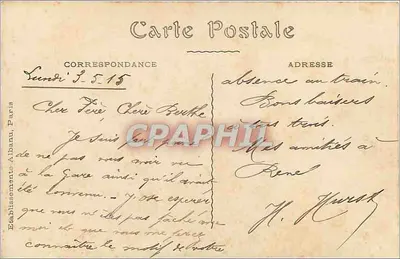 Carte Postale
CORRESPONDANCE
ADRESSE
Lundi 3-5-15
Cher Père, Chère Berthe
Je suis
de ne pas vous voir
à la gare ainsi qu'il avait
été convenu. J'ose espérer
que vous n'êtes pas fâché
moi et que vous me ferez
connaître le motif de votre
absence au train.
Bons baisers
à tous trois.
Mes amitiés à
René
H. Hurst
Etablissements Albanu, Paris
CPAPHIL